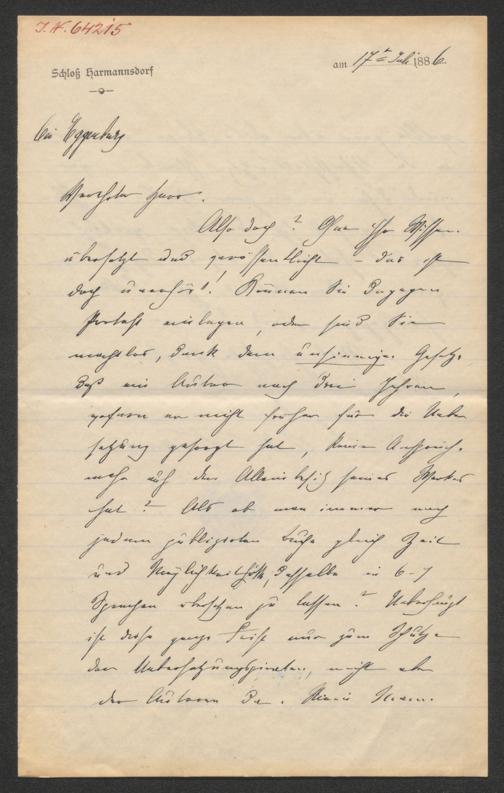 I. N. 64215
Schloß Harmannsdorf
am 17ten Juli 1886.
bei Eggenburg
Verehrter Herr.
Also doch? Ohne Ihr Wissen
übersetzt und veröffentlicht – das ist
doch unerhört! Können Sie dagegen
Protest einlegen, oder sind Sie
machtlos, dank dem unsinnigen Gesetz,
daß ein Autor nach drei Jahren,
sofern er nicht früher für die Ueber
setzung gesorgt hat, keine Anspruch
mehr auf den Alleinbesitz seines Werkes
hat? Als ob man immer nach
jedem publizirten Buche gleich Zeit
und Möglichkeit hätte, dasselbe in 6–7
Sprachen übersetzen zu lassen? Ueberhaupt
ist diese ganze Frist nur zum Schutze
der Uebersetzungspiraten, nicht aber
der Autoren da. Kein